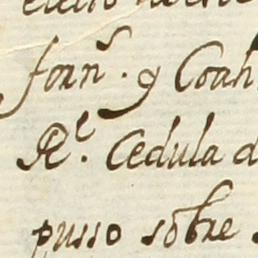 forn^s. y Coah
R^l. Cedula d
pusso sobre